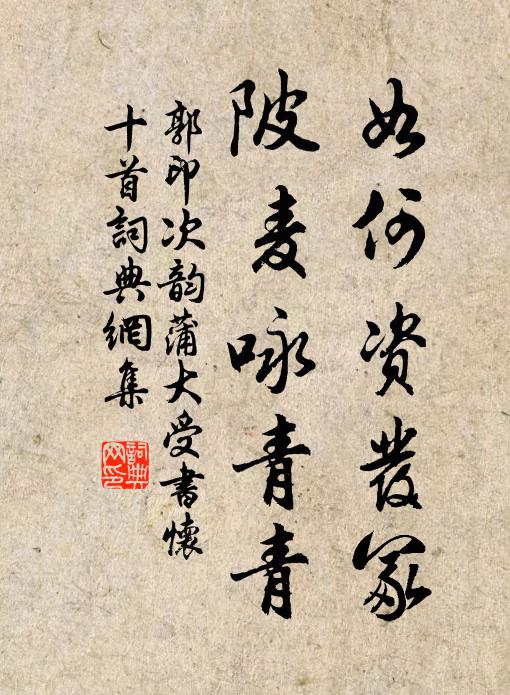 如何资发冢
陂麦咏青青
郭印次韵蒲大受書懷
十首詞典網集
詞典网印